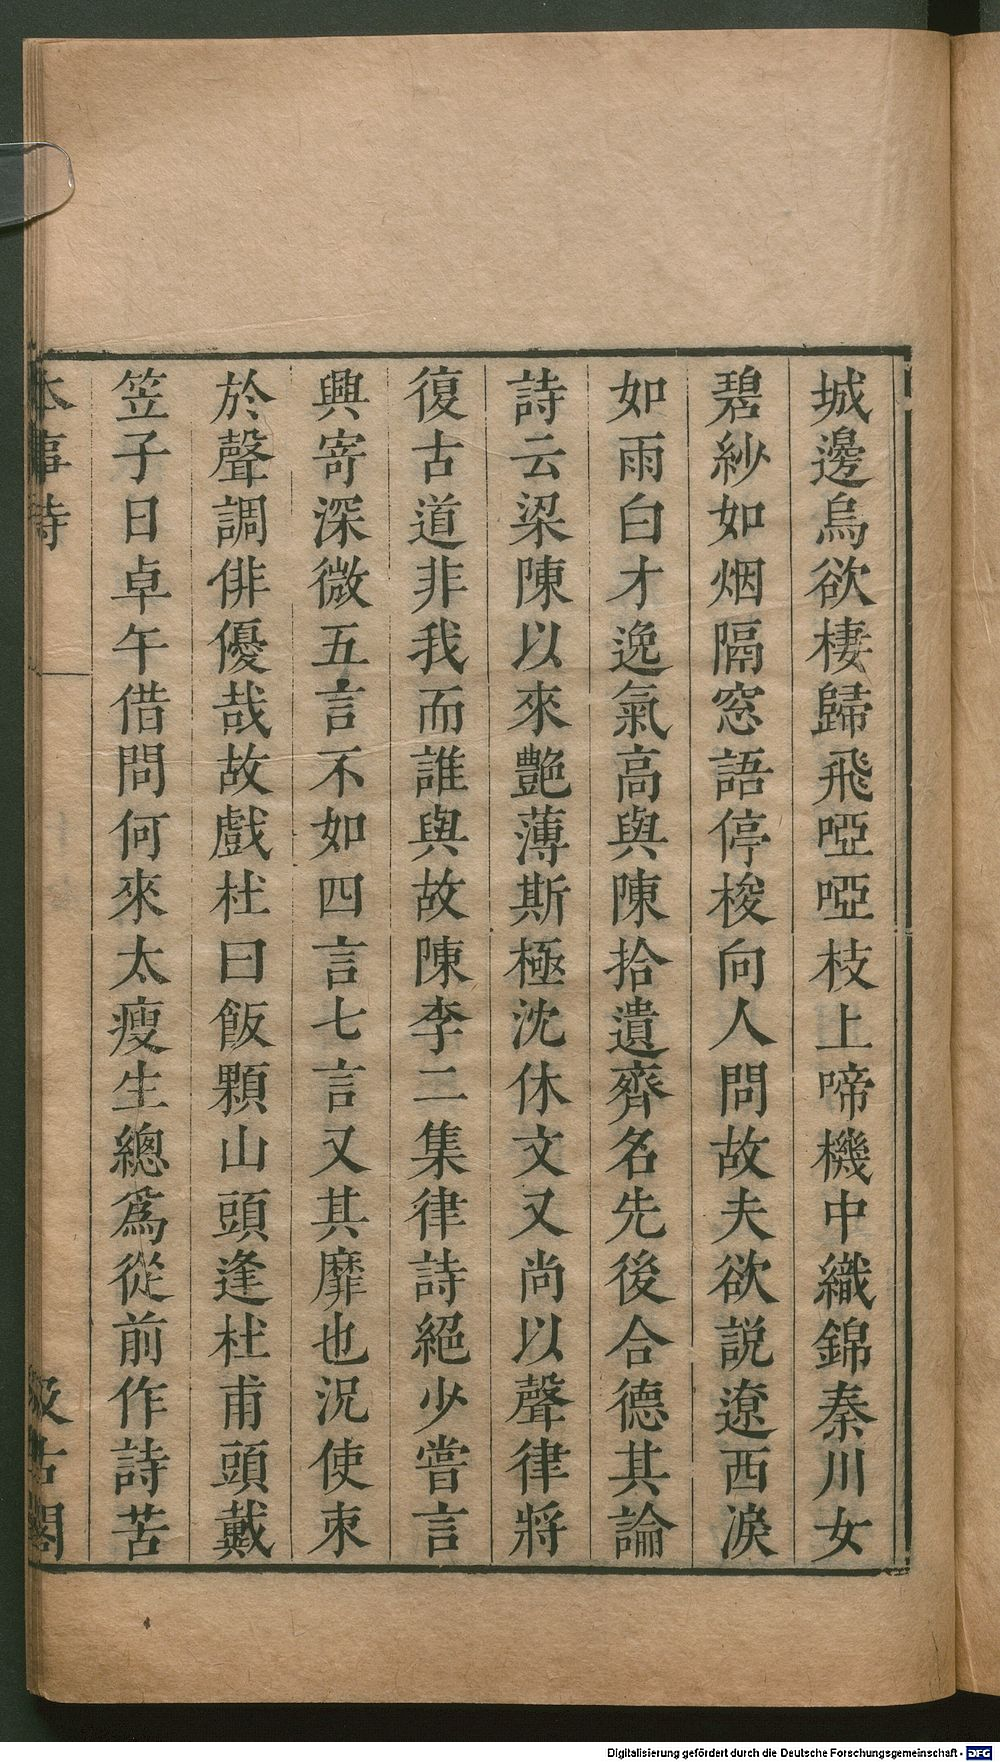 城邊烏欲棲歸飛啞啞枝上啼機中織錦秦川女
碧紗如烟隔窓語停梭向人問故夫欲説遼西淚
如雨白才逸氣高與陳拾遺齊名先後合德其論
詩云梁陳以來艶薄斯極沈休文又尚以聲律將
復古道非我而誰與故陳李二集律詩絕少嘗言
興寄深微五言不如四言七言又其靡也況使束
於聲調俳優哉故戲杜曰飯顆山頭逢杜甫頭戴
笠子日卓午借問何來太瘦生總爲從前作詩苦
本事詩
汲古閣
Digitalisierung gefördert durch die Deutsche Forschungsgemeinschaft - DFG